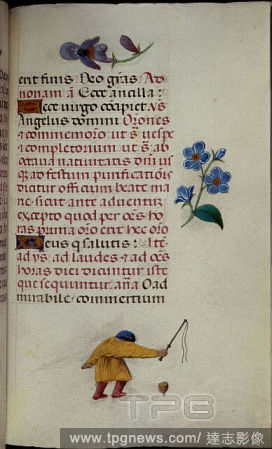 ent finis. Deo gratias. Ad
nonam añ Ecce ancilla:
Ecce virgo concipiet. Vs
Angelus domini Orones
et commemoro. ut s̄ vespe
et completorium ut s̄ ab
octava nativitatis dm̄ us
q̄ ad festum purificatiōis
dicitur officium beate ma
rie sicut ante adventū,
excepto quod per oēs ho
ras prima orō erit hec orō
Deus q̄ salutis: Alt̄e
ad vs̄ ad laudes et ad oēs
horas diei dicuntur iste
que sequuntur. Añā O ad
mirabile commertium
TPG
www.tpgnews.com/達志影像